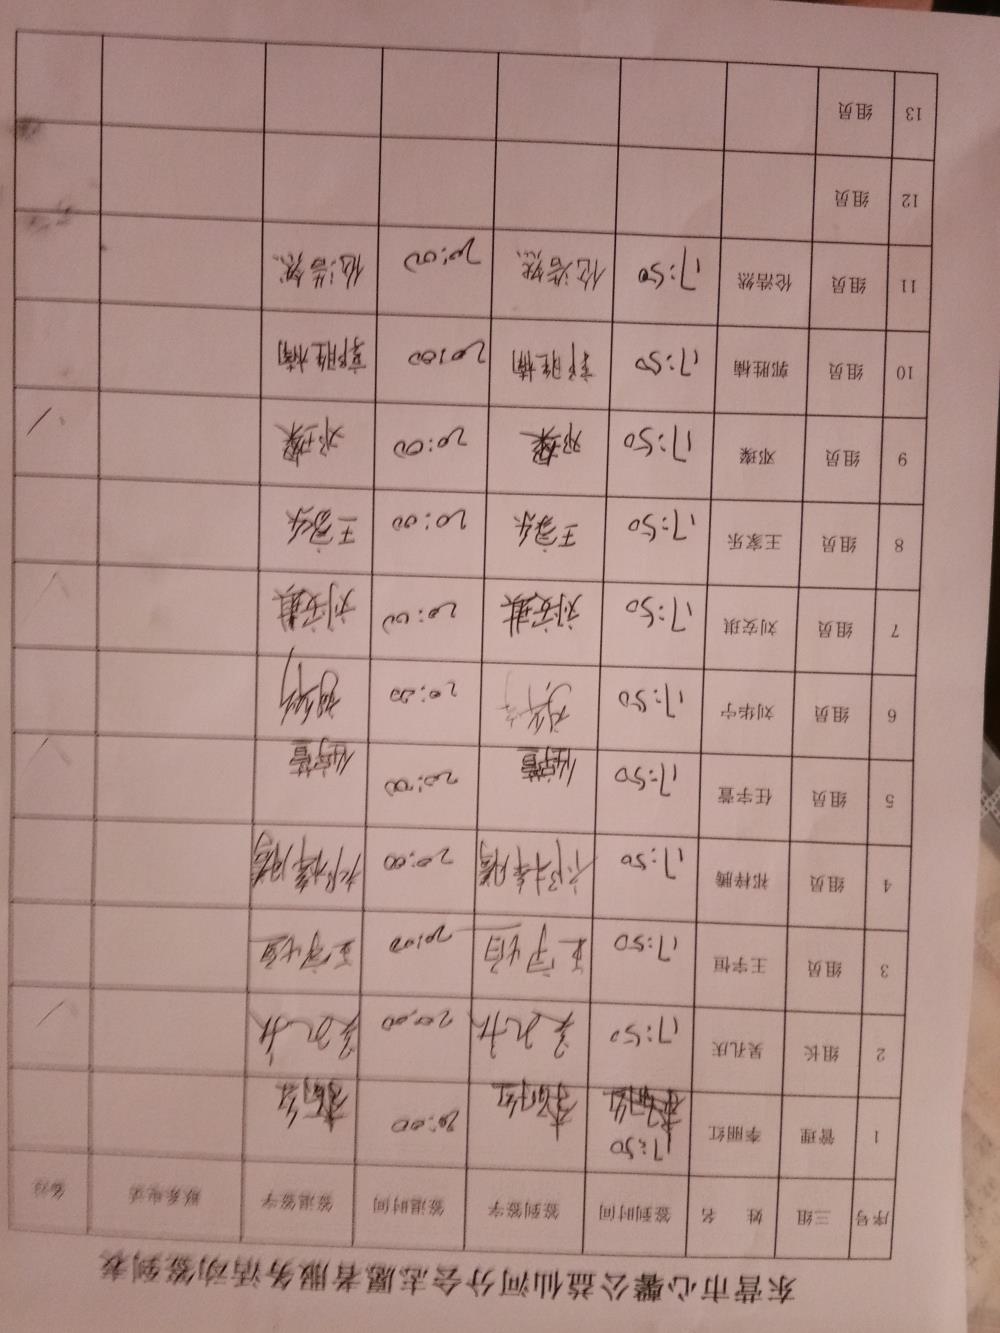 东营市心馨公益仙河分会志愿者服务活动签到表
序号 三组 姓 名 签到时间 签到签字 签退时间 签退签字 联系电话 备注
1 管理 李丽红 17:50 李丽红 20:00 李丽红
2 组长 吴孔庆 17:50 吴孔庆 20:00 吴孔庆
3 组员 王宇恒 17:50 王宇恒 20:00 王宇恒
4 组员 祁梓腾 17:50 祁梓腾 20:00 祁梓腾
5 组员 任字萱 17:50 20:00
6 组员 刘华宁 17:50 20:00
7 组员 刘安琪 17:50 刘安琪 20:00 刘安琪
8 组员 王家乐 17:50 王家乐 20:00 王家乐
9 组员 邓璨 17:50 邓璨 20:00 邓璨
10 组员 郭胜楠 17:50 郭胜楠 20:00 郭胜楠
11 组员 伦浩然 17:50 伦浩然 20:00 伦浩然
12 组员
13 组员